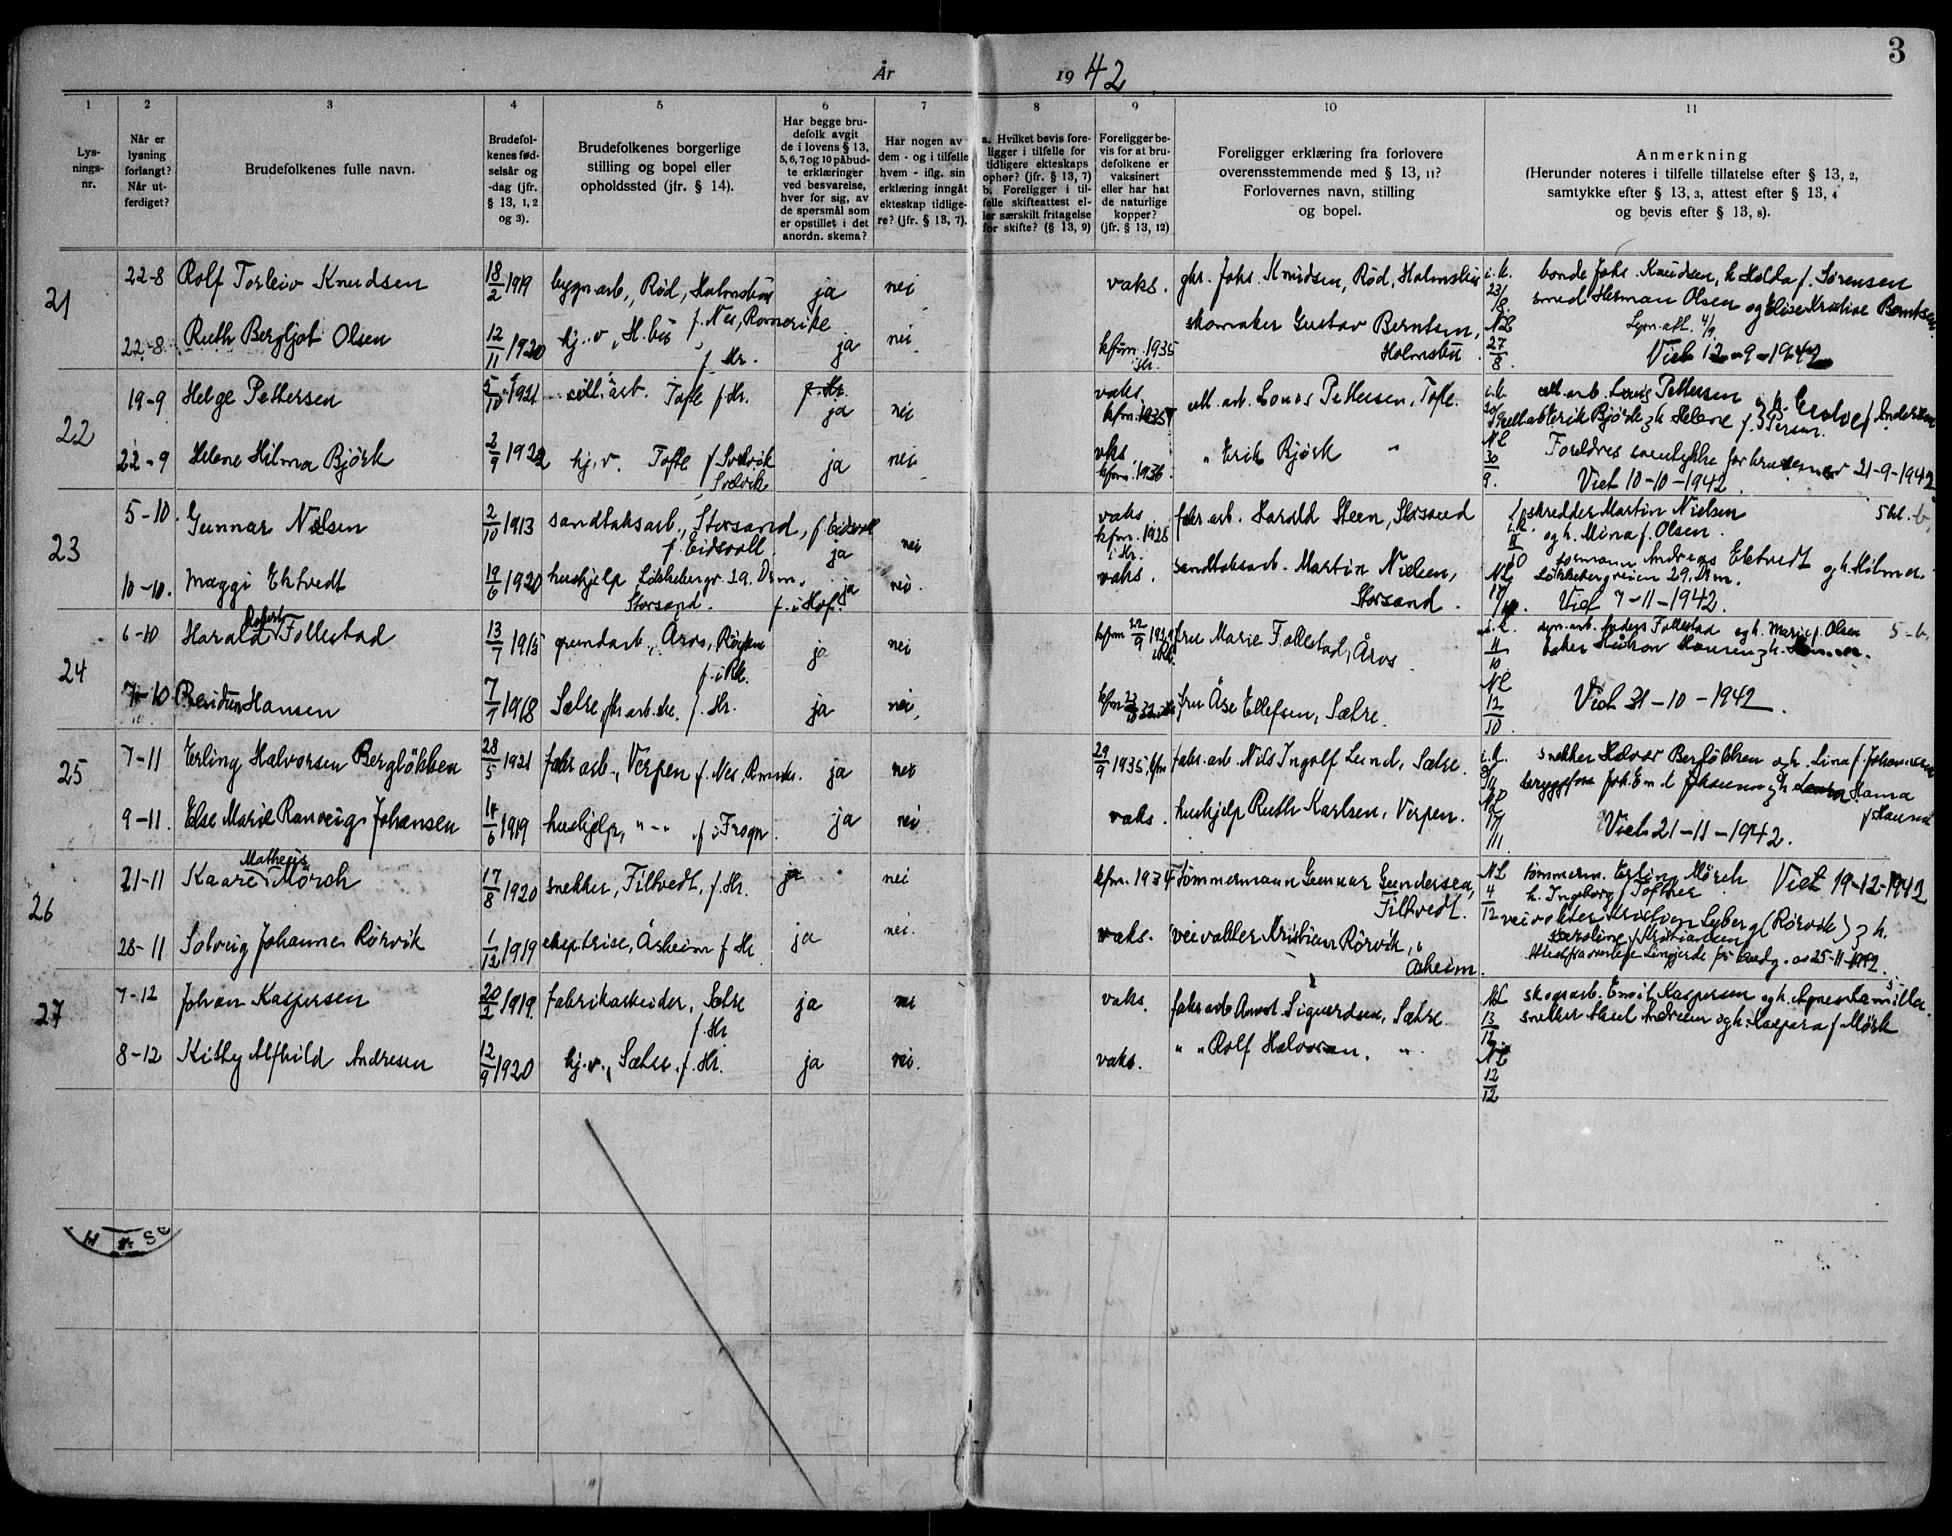 3
År 1942
1
2
3
4
5
6
7
8
9
10
11
Lys-
nings-
nr.
Når er
lysning
forlangt?
Når ut-
ferdiget?
Brudefolkenes fulle navn.
Brudefol-
kenes fød-
selsår og
-dag (jfr.
§ 13, 1, 2
og 3).
Brudefolkenes borgerlige
stilling og bopel eller
opholdssted (jfr. § 14).
Har begge bru-
defolk avgit
de i lovens § 13,
5, 6, 7 og 10 påbud-
te erklæringer
ved besvarelse,
hver for sig, av
de spørsmål som
er opstillet i det
anordn. skema?
Har nogen av
dem - og i tilfelle
hvem - iflg. sin
erklæring inngåt
ekteskap tidlige-
re? (jfr. § 13, 7).
a. Hvilket bevis fore-
ligger i tilfelle for
tidligere ekteskaps
ophør? (jfr. § 13, 7)
b. Foreligger i til-
felle skifteattest el-
ler særskilt fritagelse
for skifte? (§ 13, 9)
Foreligger be-
vis for at bru-
defolkene er
vaksinert
eller har hat
de naturlige
kopper?
(jfr. § 13, 12)
Foreligger erklæring fra forlovere
overensstemmende med § 13, 11?
Forlovernes navn, stilling
og bopel.
Anmerkning
(Herunder noteres i tilfelle tillatelse efter § 13, 2,
samtykke efter § 13, 3, attest efter § 13, 4
og bevis efter § 13, 8).
21
22-8 Rolf Torleiv Knudsen 18/2 1919 bygn.arb., Rød, Holmsbu ja nei vaks. gbr. Johs. Knudsen, Rød, Holmsbu
f. Nes, Romerike
i.k. 23/8 bonde Johs. Knudsen, h. Holda f. Sørensen
22-8 Ruth Bergljot Olsen 12/11 1920 hj.v., H.bu f. Hr. ja nei kfm. 1935 Hr. skomaker Gustav Berntsen, Holmsbu
NL 27/8 smed Herman Olsen og
Lysn. afl. 4/9
Viet 12-9-1942
22
19-9 Helge Pettersen 5/10 1921 cell.arb. Tofte f. Hr. ja nei vaks. kfm. 1935 cell. arb. Pettersen, Tofte.
i.k. cell. arb. Pettersen
22-9 Helene Hilma Bjørk 2/9 1922 hj.v. Tofte f. Svelvik ja nei vaks kfm. 1936 " Erik Bjørk "
Svelvik
NL 30/9. Erik Bjørk h. Helene f. Person.
Foreldres samtykke for bruden 21-9-1942
Viet 10-10-1942.
23
5-10. Gunnar Nielsen 2/10 1913 sandtaksarb., Storsand, f. Eidsvoll ja nei vaks kfm. 1928 i Hr. fabr. arb. Harald Steen, Storsand
f. Eidsvoll.
skredder Martin Nielsen
og h. Mina f. Olsen.
5 kl. b.
10-10. Maggi Ektvedt 19/6 1920 hushjelp Løkkebergv. 29. Drm. ja nei. vaks. sandtaksarb. Martin Nielsen, Storsand.
Storsand. f. i Hof.
NL formann Andreas Ektvedt og h. Hilma.
Løkkebergveien 29. Drm.
Viet 7-11-1942.
24
6-10 Harald Robert Follestad 13/7 1915 grundarb., Åros, Røyken ja nei kfm 22/9 1929 fru Marie Follestad, Åros
f. i Rk.
i.k. 11/10. Anders Follestad og h. Marie f. Olsen 5-b.
7-10 Reidun Hansen 7/7 1918 Sætre, fbr. arb.ske. f. Hr. ja nei, kfm fru Åse Ellefsen, Sætre.
NL 12/10 baker Håkon Hansen
Viet 31-10-1942.
25
7-11 Erling Halvorsen Bergløkken 28/5 1921 fabr arb., Verpen f. Nes, Rmrk. ja nei 29/9 1935, kfm fabr. arb. Nils Ingolf Lund, Sætre.
i.k. 8/11 snekker Halvor Bergløkken og h. Lina f. Johannesen
9-11. Else Marie Ranveig Johansen 14/6 1919 hushjelp, " - " f. i Frogn ja nei vaks. hushjelp Ruth Karlsen, Verpen.
h. Laura Hama
f. Hansen
Viet 21-11-1942.
26
21-11 Kaare Matheus Mörch 17/8 1920 snekker, Filtvedt, f. Hr. ja nei kfm. 1934 Tömmermann Gunnar Gundersen, Filtvedt.
NL 4/12 tømmerm. Erling Mørch Viet 19-12-1942
h. Ingeborg f. Toftner
28-11 Solveig Johanne Rörvik 1/12 1919 ekspetrise, Åsheim f. Hr. ja nei. vaks. veivokter Kristian Rörvik, Åsheim.
veivokter Kristian Lyberg (Rörvik) h.
Karoline f. Kristiansen
25-11-1942.
27
7-12 Johan Kaspersen 20/2 1919. fabrikarbeider, Sætre ja nei vaks. fabr arb Arnst. Sigurdsen, Sætre.
f. Hr
NL 13/12 skogsarb. Emil Kaspersen og h. Agnes Kamilla.
8-12 Kitty Alfhild Andresen 12/9 1920 hj.v., Sætre. f. Hr. ja nei. vaks. " " Rolf Halvorsen, "
NL 12/12 snekker Aksel Andresen og h. Kaspara f. Mørk